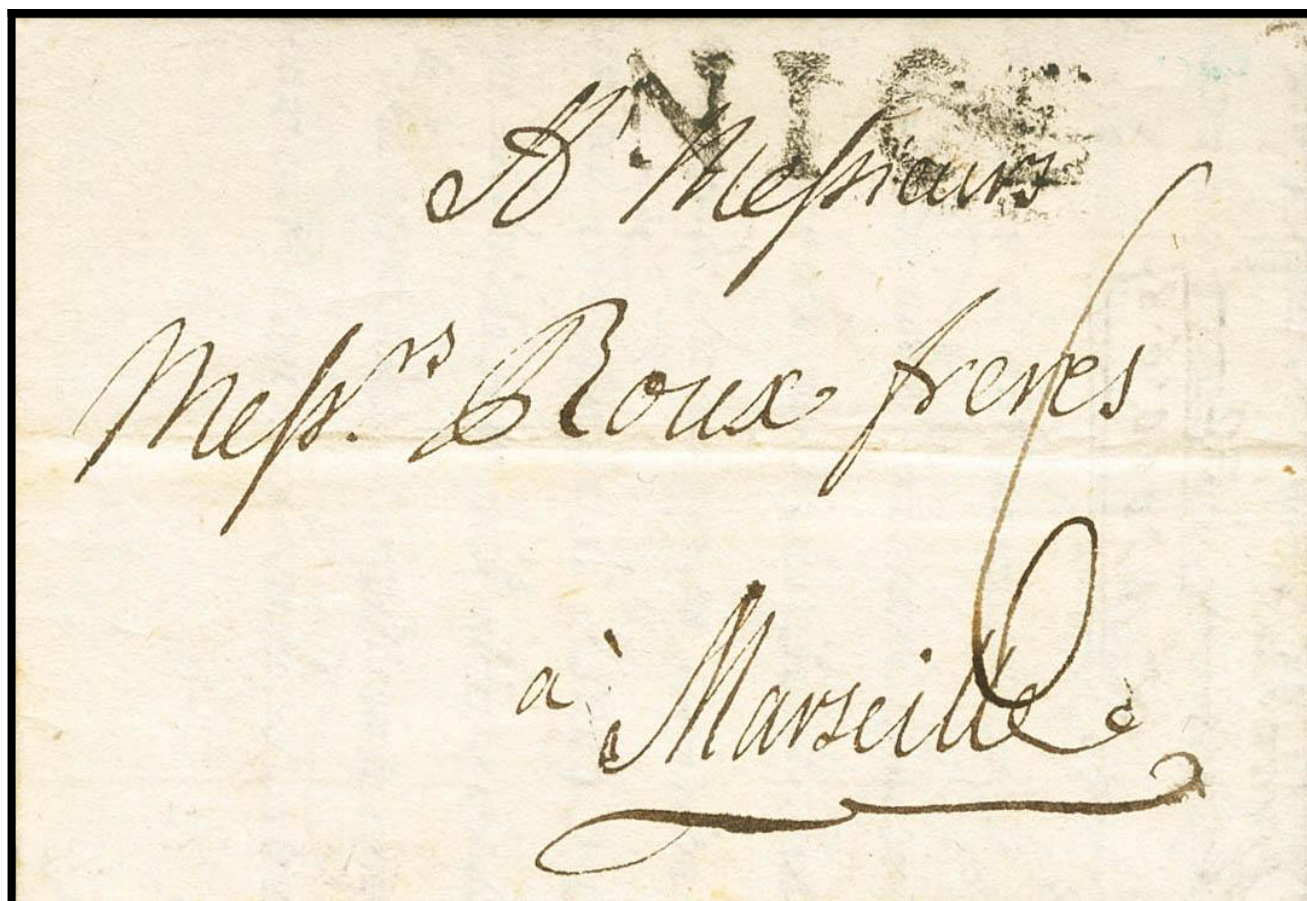 NICE
A Messieurs
Messrs. Roux freres
6
à Marseille